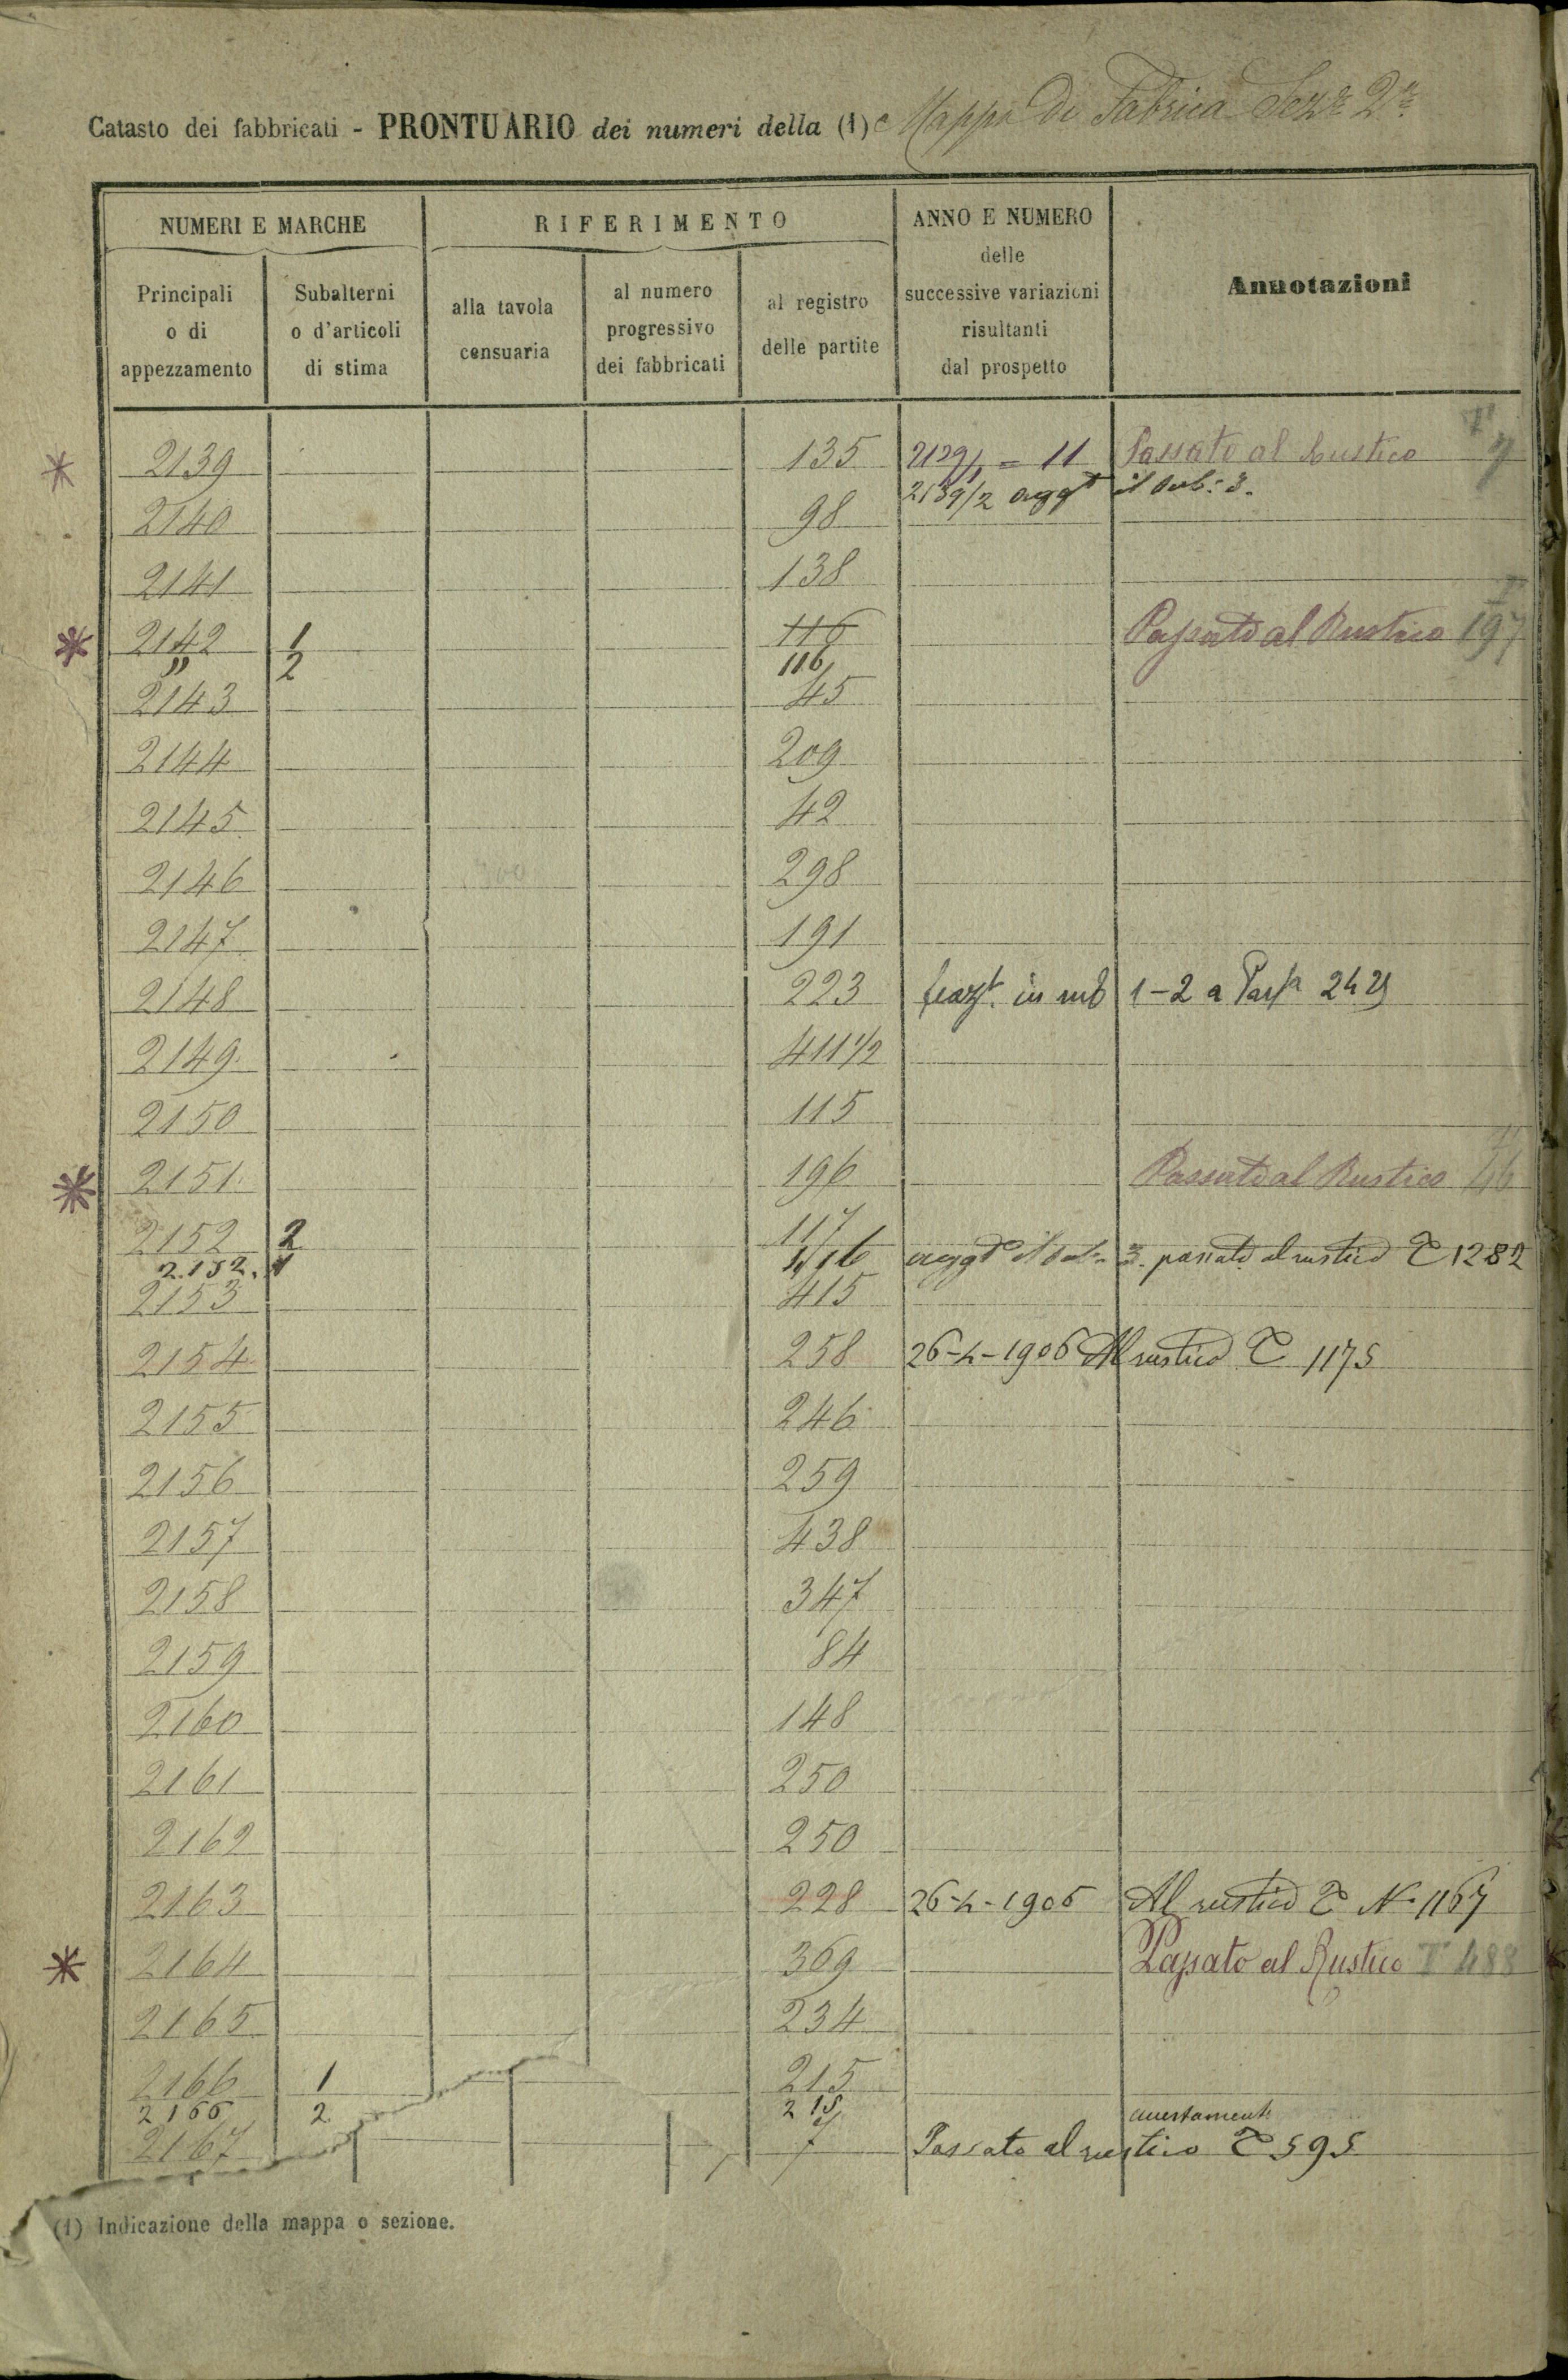 Catasto dei fabbricati - PRONTUARIO dei numeri della (1) Mappa di Fabrica Sez.e 2.a
NUMERI E MARCHE
RIFERIMENTO
ANNO E NUMERO
delle
successive variazioni
risultanti
dal prospetto
Annotazioni
Principali
o di
appezzamento
Subalterni
o d'articoli
di stima
alla tavola
censuaria
al numero
progressivo
dei fabbricati
al registro
delle partite
2139 135 2129/1 = 11 Passato al Rustico 7
2139/2 aggt il sub: 3.
2140 98
2141 138
2142 1 116 Passato al Rustico 197
" 2 116
2143 45
2144 209
2145 42
2146 298
2147 191
2148 223 frazt. in sub 1-2 a Parta
2149 411 1/2
2150 115
2151 196 Passato al Rustico 46
2152 2 117
2.152. 1 aggto il sub 3. passato al rustico T 1282
2153 415
2154 258 26-4-1906 Al rustico T 1175
2155 246
2156 259
2157 438
2158 347
2159 84
2160 148
2161 250
2162 250
2163 228 26-4-1906 Al rustico T N. 1167
2164 369 Passato al Rustico T 488
2165 234
2166 1 215
2166 2 215
2167 7 Passato al rustico T 595
(1) Indicazione della mappa o sezione.